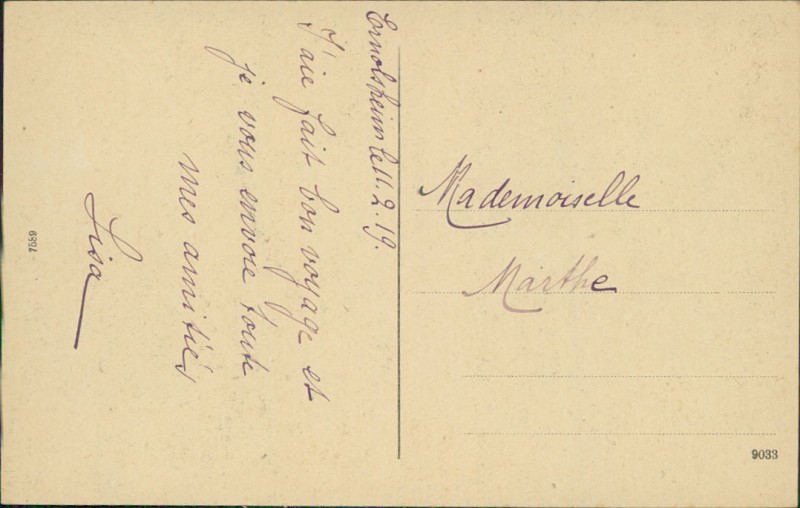 Ernolsheim le 11.2.19.
J'aie fait bon voyage et
je vous envoie toute
mes amitiés
Lisa
7589
Mademoiselle
Marthe
9033